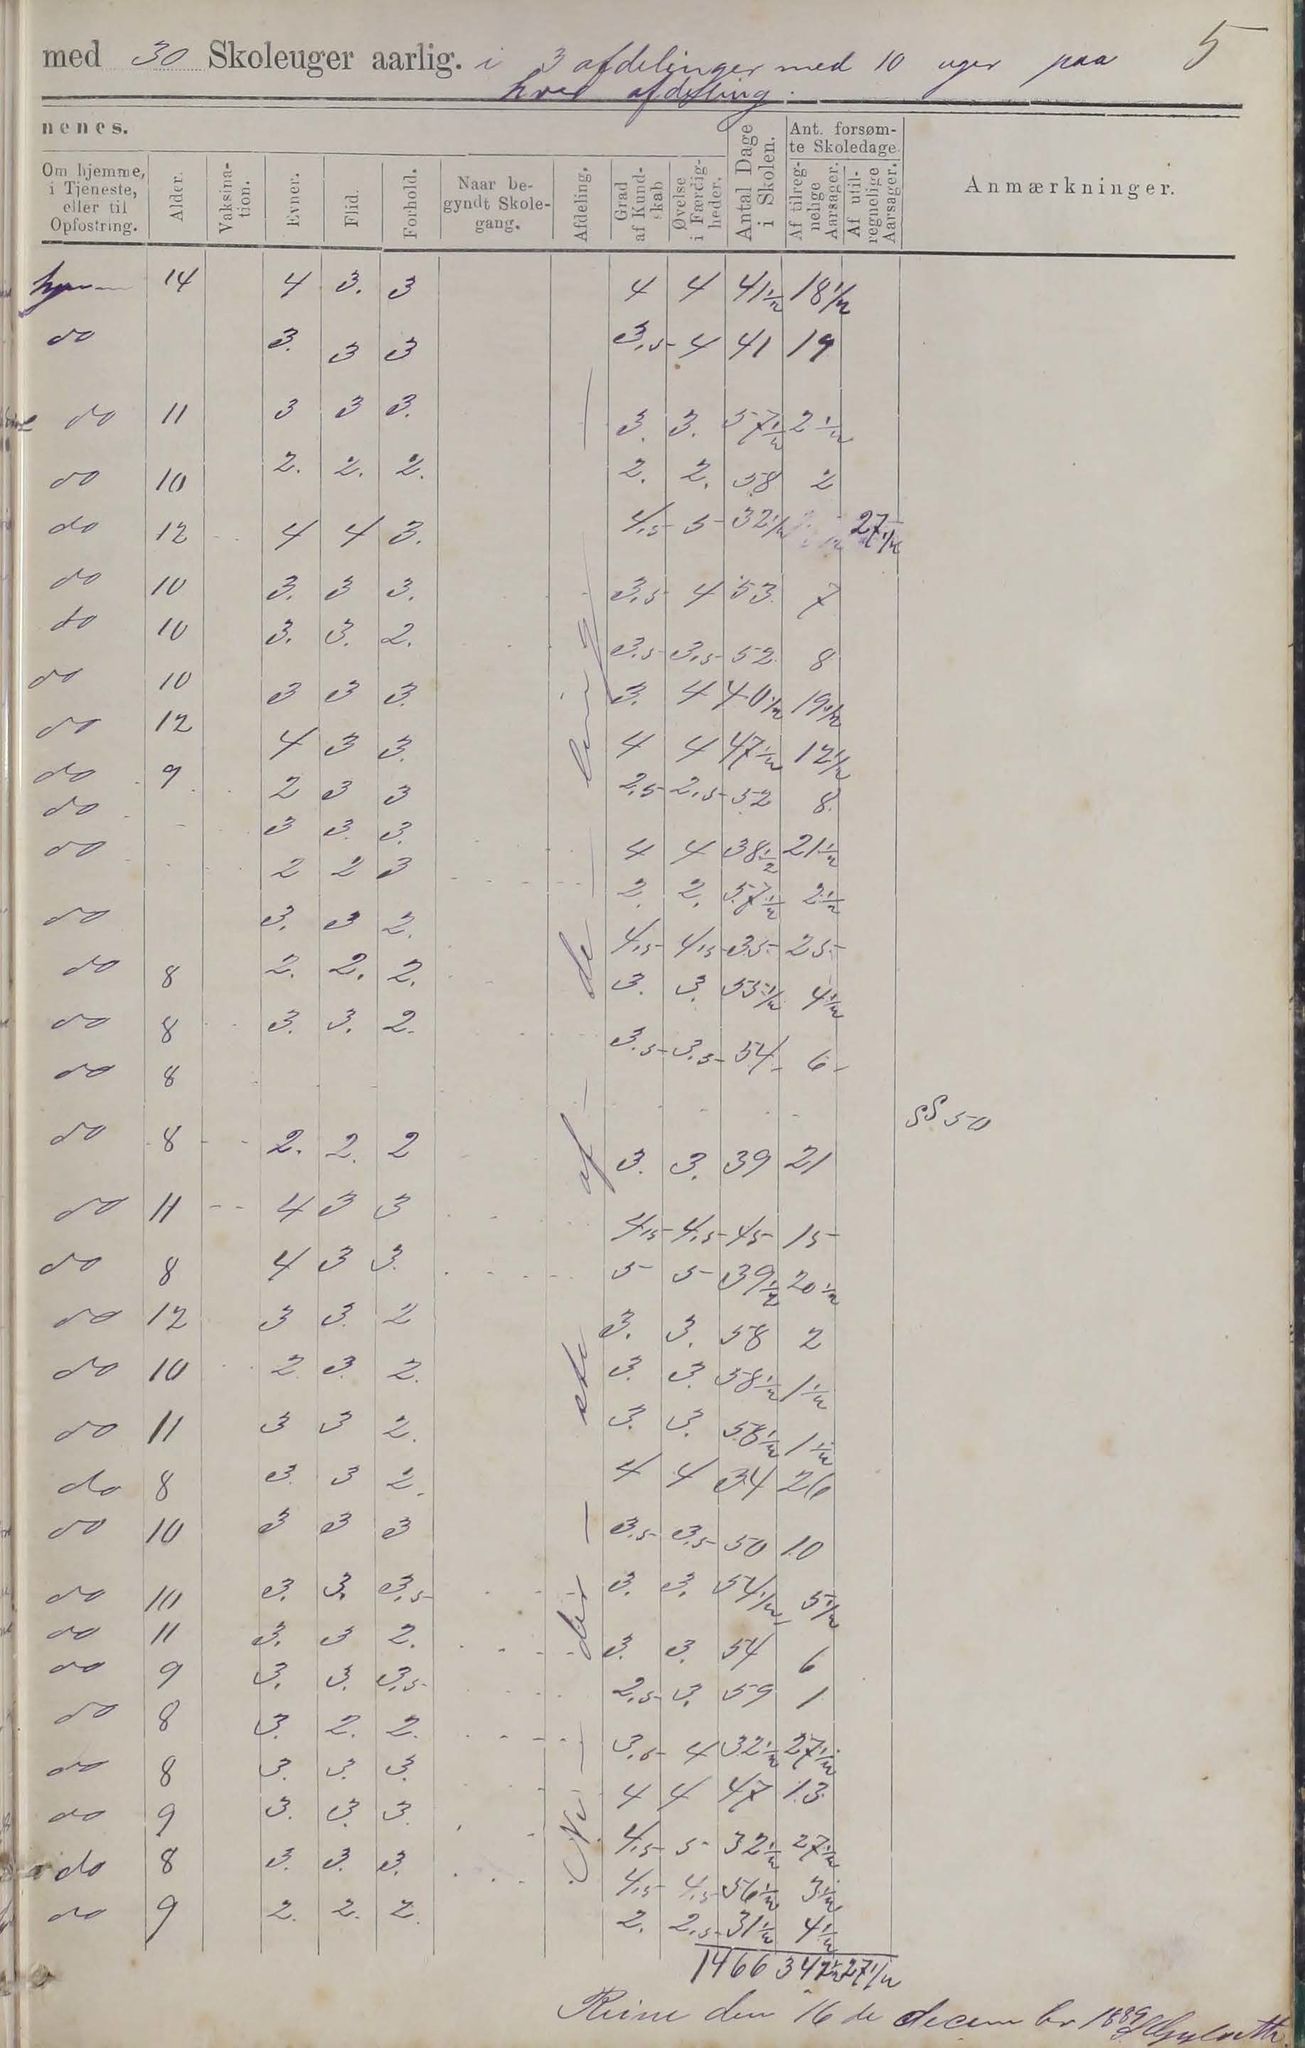 5
med 30 Skoleuger aarlig. i 3 afdelinger med 10 uger paa
hver afdeling.
nenes.
Om hjemme, i Tjeneste, eller til Opfostring. Alder. Vaksination. Evner. Flid. Forhold. Naar begyndt Skolegang. Afdeling. Grad af Kundskab Øvelse i Færdigheder. Antal Dage i Skolen. Ant. forsømte Skoledage Af tilregnelige Aarsager. Af utilregnelige Aarsager. Anmærkninger.
hjemme 14 4 3. 3 4 4 41 1/2 18 1/2
do 3. 3 3 3,5 4 41 19
do 11 3 3 3. 3. 3. 57 1/2 2 1/2
do 10 2. 2. 2. 2. 2. 58 2
do 12 4 4 3. 4,5 5 32 1/2 27 1/2
do 10 3. 3 3. 3,5 4 53 7
do 10 3. 3. 2. 3,5 3,5 52 8
do 10 3 3 3. 3. 4 40 1/2 19 1/2
do 12 4 3 3. 4 4 47 1/2 12 1/2
do 9 2 3 3 2,5 2,5 52 8
do 3 3. 3. 4 4 38 1/2 21 1/2
do 2 2 3 2. 2. 57 1/2 2 1/2
do 3. 3 2. 4,5 4,5 35 25
do 8 2. 2. 2. 3. 3. 55 1/2 4 1/2
do 8 3. 3. 2. 3,5 3,5 54 6
do 8
§§ 50
do 8 2. 2. 2 3. 3. 39 21
do 11 4 3 3 4,5 4,5 45 15
do 8 4 3 3. 5 5 39 1/2 20 1/2
do 12 3 3. 2 3. 3. 58 2
do 10 2 3. 2. 3. 3. 58 1/2 1 1/2
do 11 3 3 2. 3. 3. 58 1/2 1 1/2
do 8 3. 3 2. 4 4 34 26
do 10 3 3 3 3,5 3,5 50 10
do 10 3. 3. 3,5 3. 3. 54 1/2 5 1/2
do 11 3. 3 2. 3. 3. 54 6
do 9 3. 3. 3,5 2,5 3. 59 1
do 8 3. 2. 2. 3,5 4 32 1/2 27 1/2
do 8 3. 3. 3. 4 4 47 13
do 9 3. 3. 3. 4,5 5 32 1/2 27 1/2
do 8 3. 3. 3. 4,5 4,5 56 1/2 3 1/2
do 9 2. 2. 2. 2. 2,5 31 1/2 4 1/2
1466 342 1/2 27 1/2
Reine den 16de decembr 1889